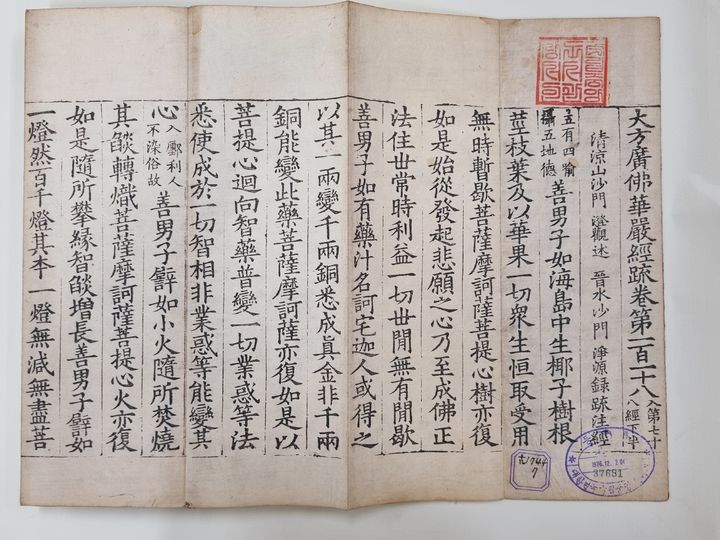 大方廣佛華嚴經䟽卷第一百一十八
入第七十
八經下半
清涼山沙門 澄觀述 晉水沙門 淨源錄䟽注經
五有四喻
攝五地德
善男子如海島中生椰子樹根
莖枝葉及以華果一切衆生恒取受用
無時暫歇菩薩摩訶薩菩提心樹亦復
如是始從發起悲願之心乃至成佛正
法住世常時利益一切世閒無有閒歇
善男子如有藥汁名訶宅迦人或得之
以其一兩變千兩銅悉成眞金非千兩
銅能變此藥菩薩摩訶薩亦復如是以
菩提心迴向智藥普變一切業惑等法
悉使成於一切智相非業惑等能變其
心
入酈利人
不染俗故
善男子譬如小火隨所焚燒
其燄轉熾菩薩摩訶薩菩提心火亦復
如是隨所攀緣智燄增長善男子譬如
一燈然百千燈其本一燈無減無盡菩
37691
7